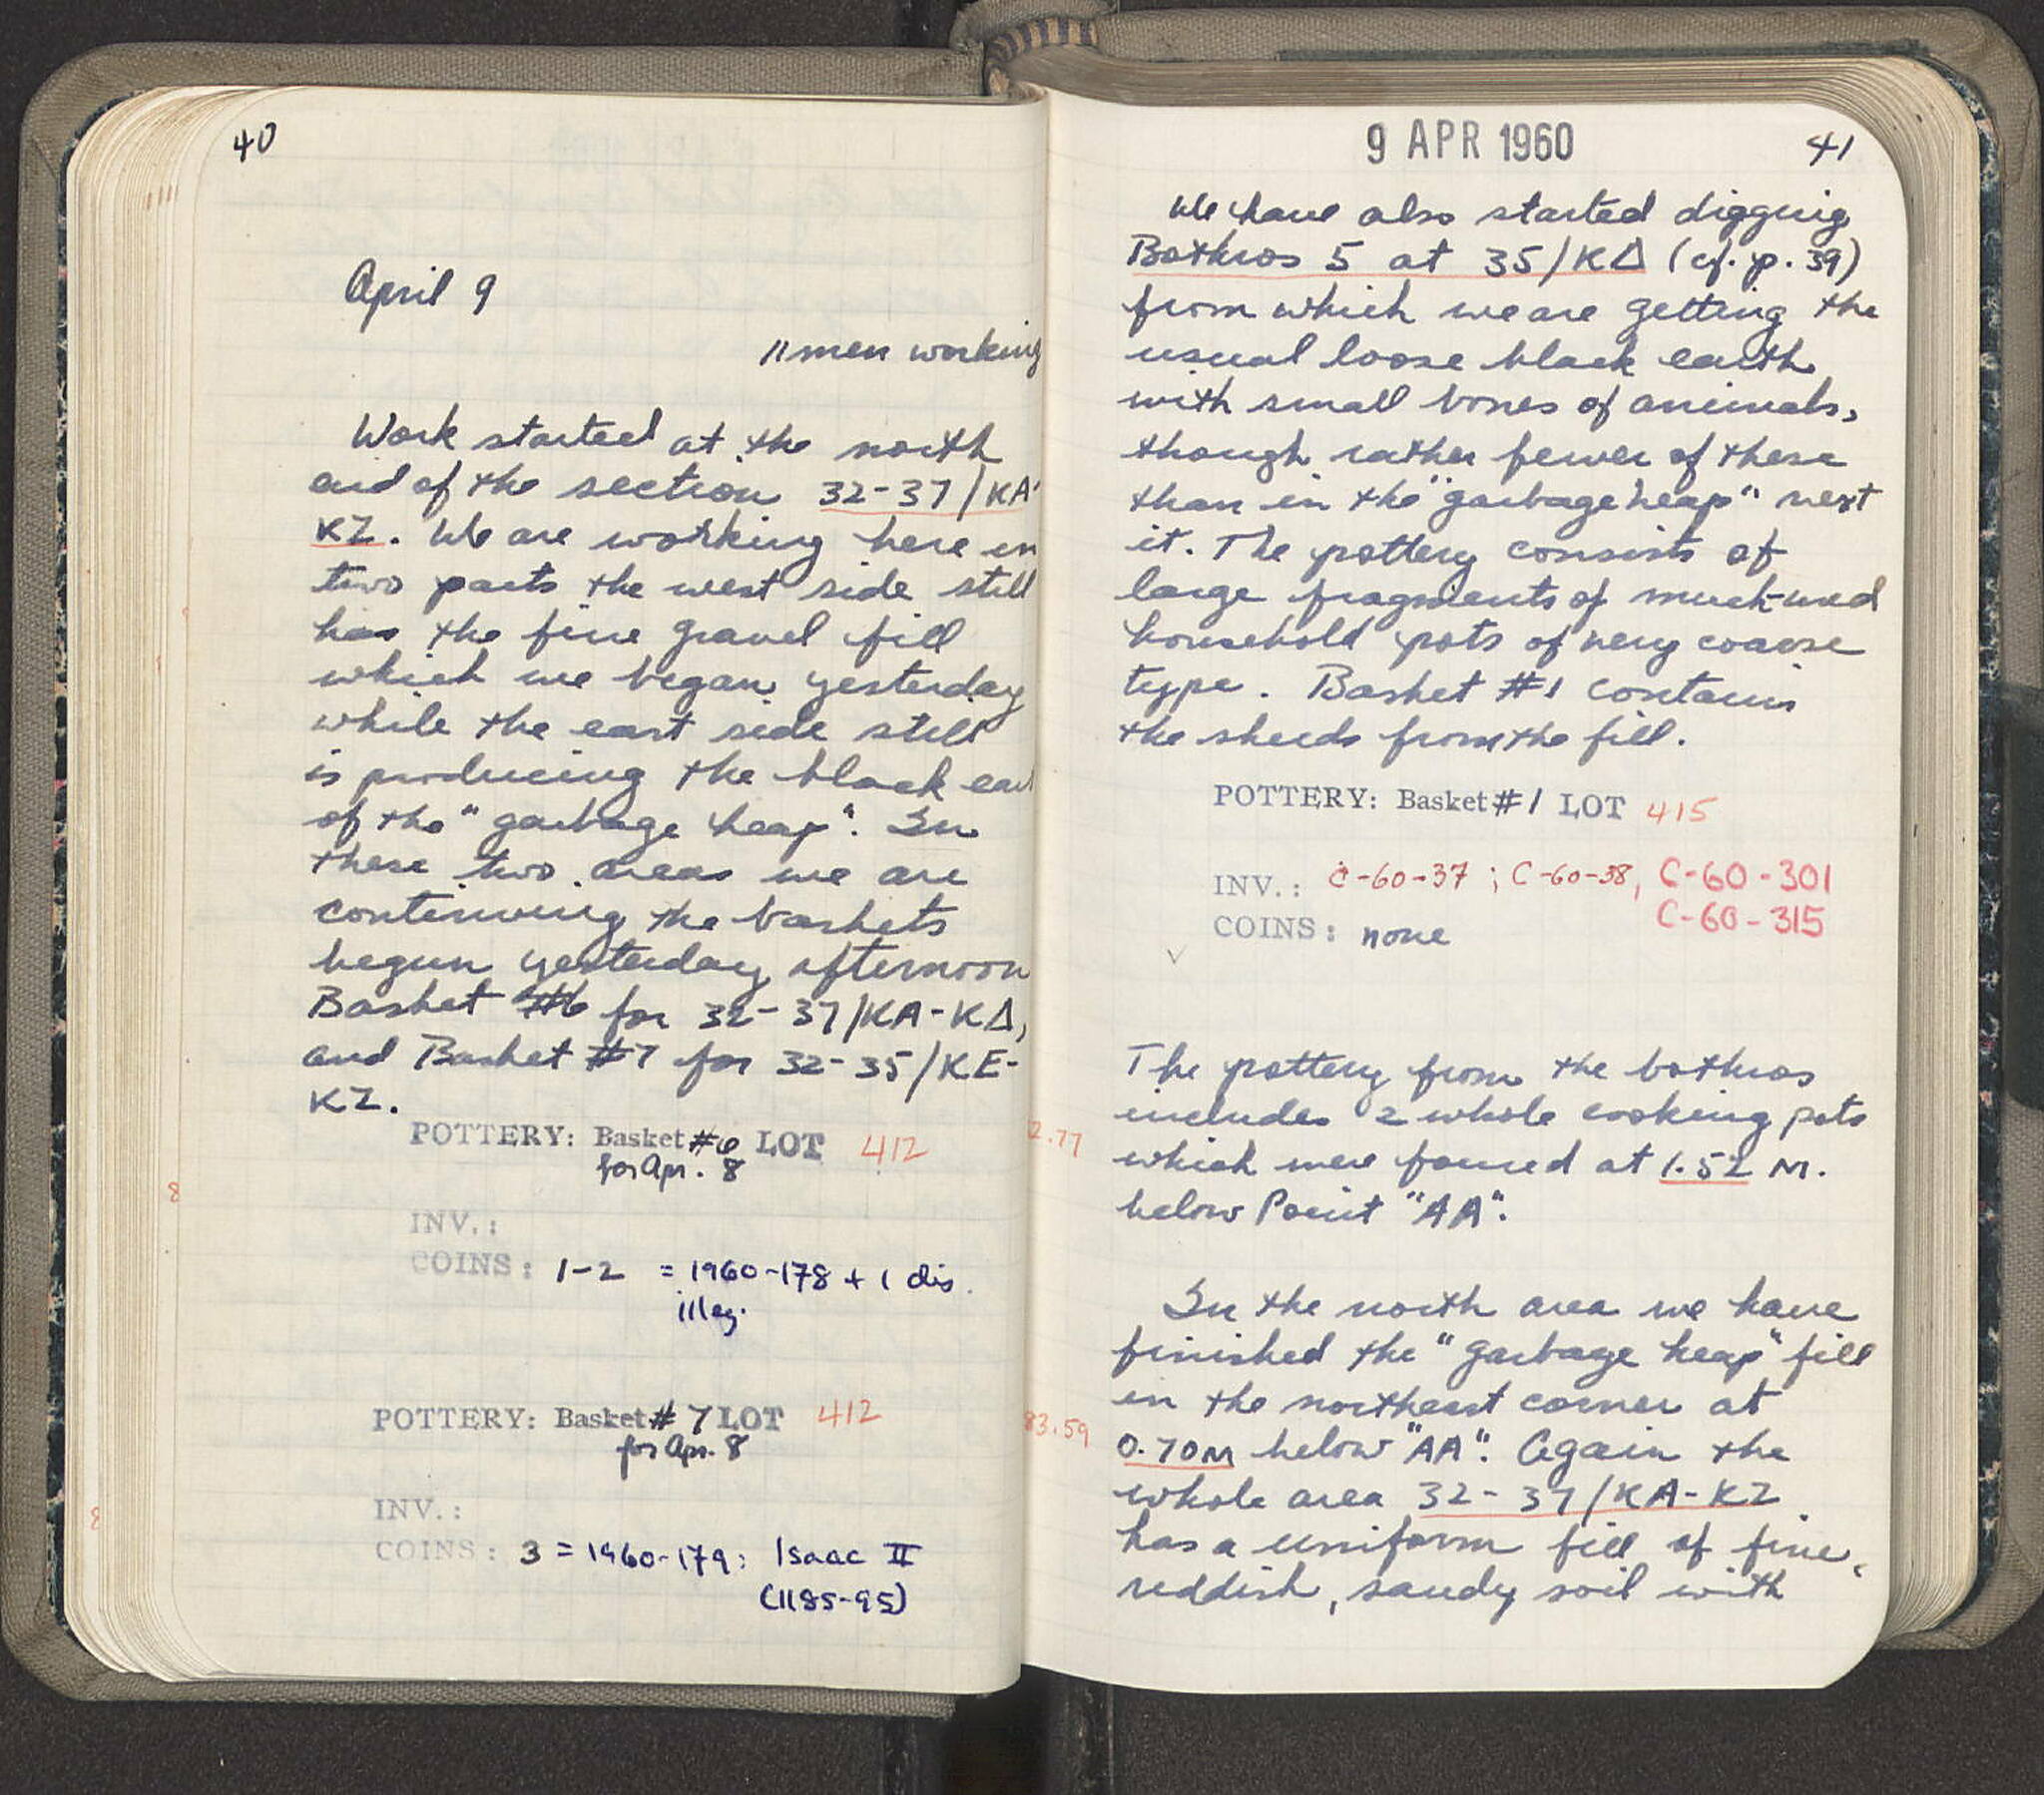 40
April 9
11 men working
Work started at the north
end of the section 32-37/KA-
KZ. We are working here in
two parts the west side still
has the fine gravel fill
which we began yesterday
while the east side still
is producing the black
of the "garbage heap". In
these two areas we are
continuing the baskets
begun yesterday afternoon
Basket #6 for 32-37/KA-KΔ,
and Basket #7 for 32-35/KE-
KZ.
POTTERY: Basket #6 LOT 412
for Apr. 8
INV.:
COINS: 1-2 = 1960-178 + 1 dis.
illeg.
POTTERY: Basket # 7 LOT 412
for Apr. 8
INV.:
COINS: 3 = 1960-179: Isaac II
(1185-95)
9 APR 1960
41
We have also started digging
Bothros 5 at 35/KΔ (cf. p. 39)
from which we are getting the
usual loose black earth
with small bones of animals,
though rather fewer of these
than in the "garbage heap" next
it. The pottery consists of
large fragments of much-used
household pots of very coarse
type. Basket #1 contains
the sherds from the fill.
POTTERY: Basket #1 LOT 415
INV.: C-60-37; C-60-38, C-60-301
C-60-315
COINS: none
✓
The pottery from the bothros
includes 2 whole cooking pots
2.77 which were found at 1.52 M.
below Point "AA".
In the north area we have
finished the "garbage heap" fill
in the northeast corner at
83.59 0.70M below "AA". Again the
whole area 32-37/KA-KZ
has a uniform fill of fine,
reddish, sandy soil with